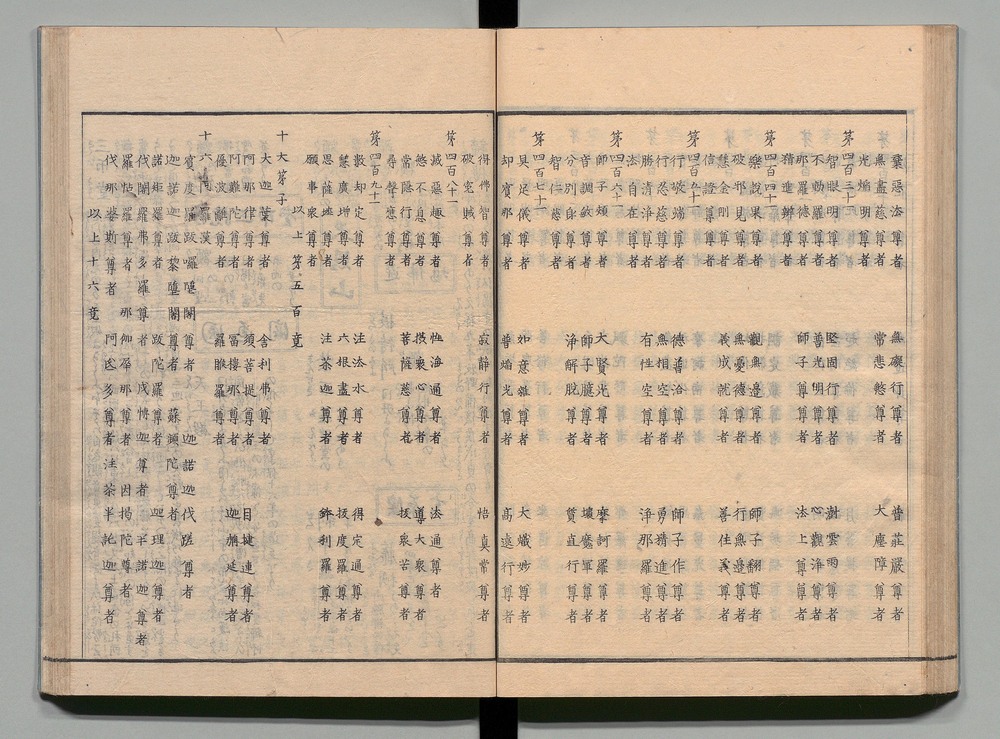 棄惡法尊者 無礙行尊者 普莊嚴尊者
無盡慈尊者 常悲愍尊者 大塵障尊者
光焔明尊者
第四百三十
智眼明尊者 堅固行尊者 澍雲雨尊者
不動羅尊者 普光明尊者 心觀淨尊者
那羅德尊者 師子尊尊者 法上尊尊者
精進辨尊者
第四百四十
樂說果尊者 觀無邊尊者 師子翻尊者
破邪見尊者 無憂德尊者 行無邊尊者
慧金剛尊者 義成就尊者 善住義尊者
信證尊尊者
第四百五十
行敬端尊者 德普洽尊者 師子作尊者
行慈忍尊者 無相空尊者 勇精進尊者
勝清淨尊者 有性空尊者 淨那羅尊者
法自在尊者
第四百六十
師子頰尊者 大賢光尊者 摩訶羅尊者
音調敏尊者 師子臆尊者 壞魔軍尊者
分別身尊者 淨解脫尊者 質直行尊者
智仁慈尊者
第四百七十
具足儀尊者 如意雜尊者 大熾妙尊者
却賓那尊者 普焔光尊者 高遠行尊者
得佛智尊者 寂靜行尊者 悟真常尊者
破寃賊尊者
第四百八十
滅惡趣尊者 性海通尊者 法通尊者
愍不息尊者 攝衆心尊者 導大衆尊者
常隱行尊者 菩薩慈尊者 拔衆苦尊者
尋聲應尊者
第四百九十
數劫定尊者 注法水尊者 得定通尊者
慧廣增尊者 六根盡尊者 拔度羅尊者
思薩埵尊者 注荼迦尊者 鉢利羅尊者
願事衆尊者
以上第五百竟
十大第子
大迦葉尊者 舍利弗尊者
阿那律尊者 須菩提尊者 目揵連尊者
阿難陀尊者 冨樓那尊者 迦旃延尊者
優波離尊者 羅睺羅尊者
十六阿羅漢
賓度羅跋囉墮闍尊者 迦諾迦伐蹉尊者
迦諾迦跋黎墮闍尊者 蘇頻陀尊者
諾矩羅尊者 跋陀羅尊者 迦理迦尊者
伐闍羅弗多羅尊者 戍博迦尊者 半諾迦尊者
羅怙羅尊者 那伽犀那尊者 因揭陀尊者
伐那婆斯尊者 阿氏多尊者 注荼半託迦尊者
以上十六竟